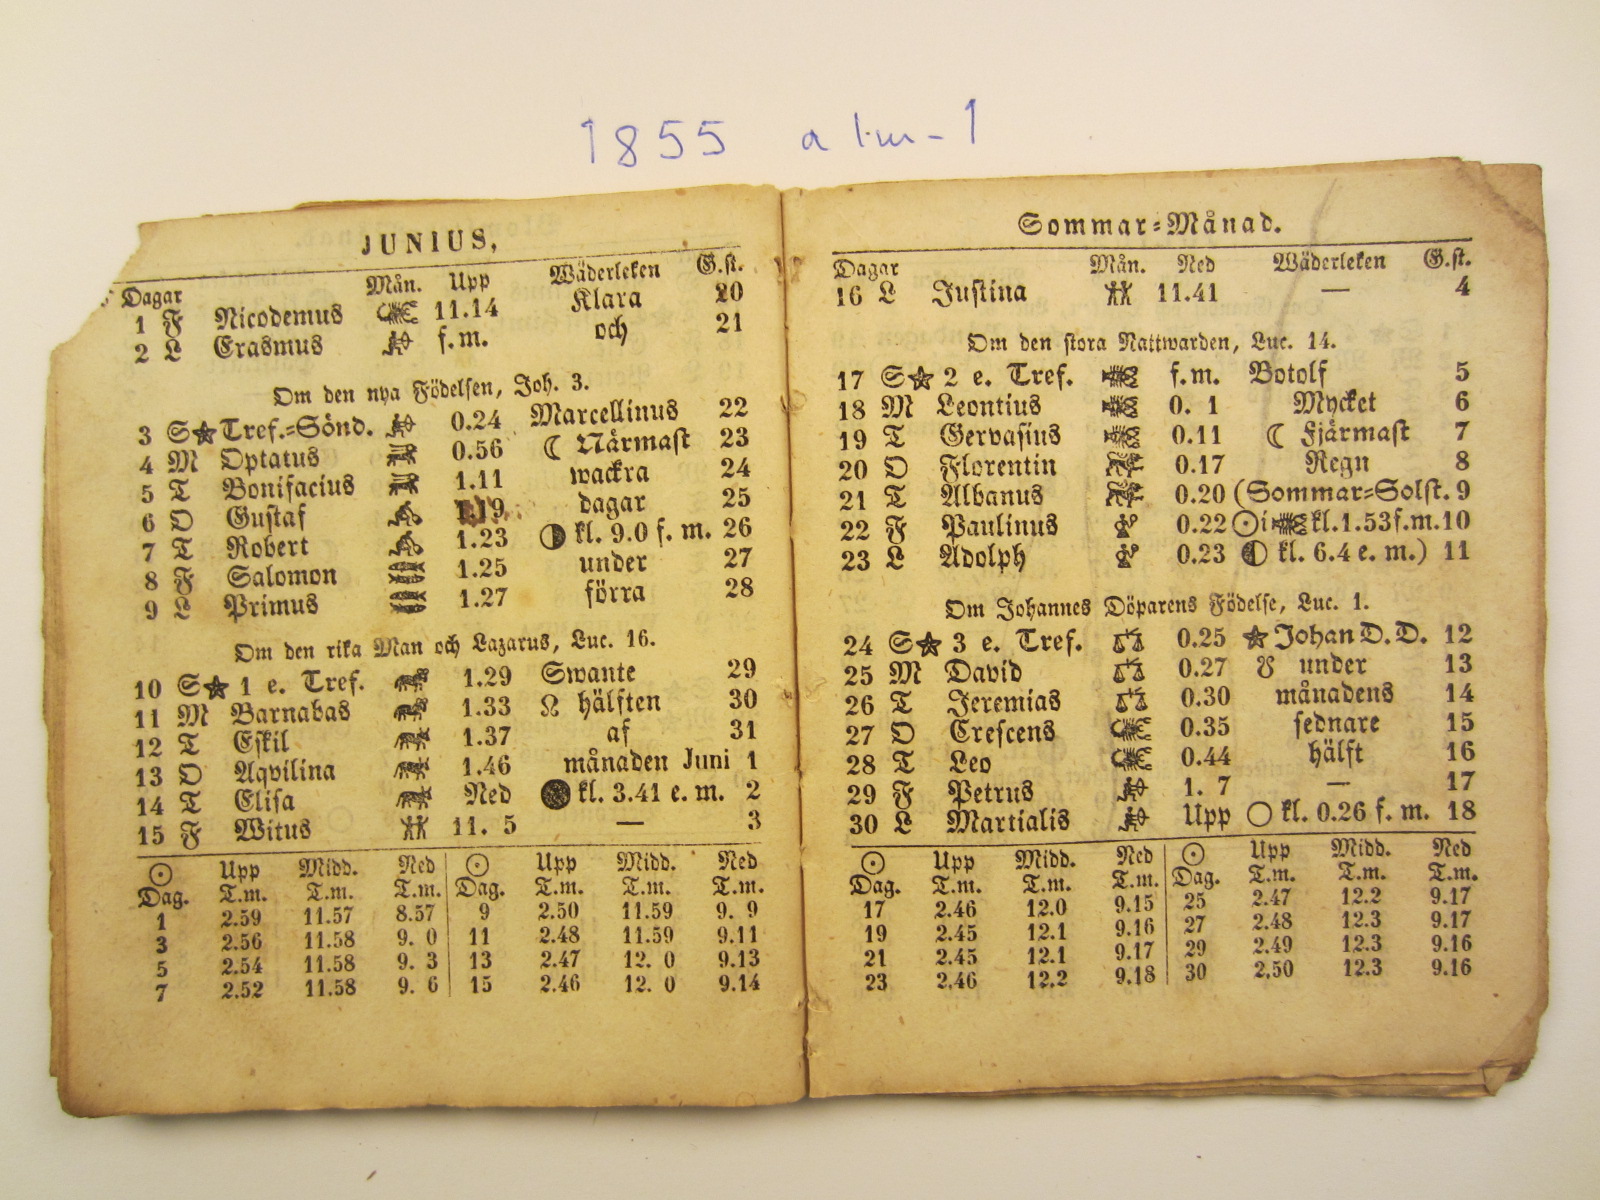 1855 alm-1
JUNIUS,
Dagar Mån. Upp Wäderleken G.st.
1 F Nicodemus 11.14 Klara 20
2 L Erasmus f.m. och 21
Om den nya Födelsen, Joh. 3.
3 S★Tref.=Sönd. 0.24 Marcellinus 22
4 M Optatus 0.56 ☾ Närmast 23
5 T Bonifacius 1.11 wackra 24
6 O Gustaf 1.19 dagar 25
7 T Robert 1.23 ◑ kl. 9.0 f. m. 26
8 F Salomon 1.25 under 27
9 L Primus 1.27 förra 28
Om den rika Man och Lazarus, Luc. 16.
10 S★ 1 e. Tref. 1.29 Swante 29
11 M Barnabas 1.33 ☊ hälften 30
12 T Eskil 1.37 af 31
13 O Aqvilina 1.46 månaden Juni 1
14 T Elisa Ned ● kl. 3.41 e. m. 2
15 F Witus 11. 5 — 3
☉ Upp Midd. Ned ☉ Upp Midd. Ned
Dag. T.m. T.m. T.m. Dag. T.m. T.m. T.m.
1 2.59 11.57 8.57 9 2.50 11.59 9. 9
3 2.56 11.58 9. 0 11 2.48 11.59 9.11
5 2.54 11.58 9. 3 13 2.47 12. 0 9.13
7 2.52 11.58 9. 6 15 2.46 12. 0 9.14
Sommar=Månad.
Dagar Mån. Ned Wäderleken G.st.
16 L Justina 11.41 — 4
Om den stora Nattwarden, Luc. 14.
17 S★ 2 e. Tref. f.m. Botolf 5
18 M Leontius 0. 1 Mycket 6
19 T Gervasius 0.11 ☾ Fjärmast 7
20 O Florentin 0.17 Regn 8
21 T Albanus 0.20 (Sommar=Solst. 9
22 F Paulinus 0.22 ☉i♋kl.1.53f.m.10
23 L Adolph 0.23 ◐ kl. 6.4 e. m.) 11
Om Johannes Döparens Födelse, Luc. 1.
24 S★ 3 e. Tref. 0.25 ★Johan D.D. 12
25 M David 0.27 ☋ under 13
26 T Jeremias 0.30 månadens 14
27 O Crescens 0.35 sednare 15
28 T Leo 0.44 hälft 16
29 F Petrus 1. 7 — 17
30 L Martialis Upp ○ kl. 0.26 f. m. 18
☉ Upp Midd. Ned ☉ Upp Midd. Ned
Dag. T.m. T.m. T.m. Dag. T.m. T.m. T.m.
17 2.46 12.0 9.15 25 2.47 12.2 9.17
19 2.45 12.1 9.16 27 2.48 12.3 9.17
21 2.45 12.1 9.17 29 2.49 12.3 9.16
23 2.46 12.2 9.18 30 2.50 12.3 9.16